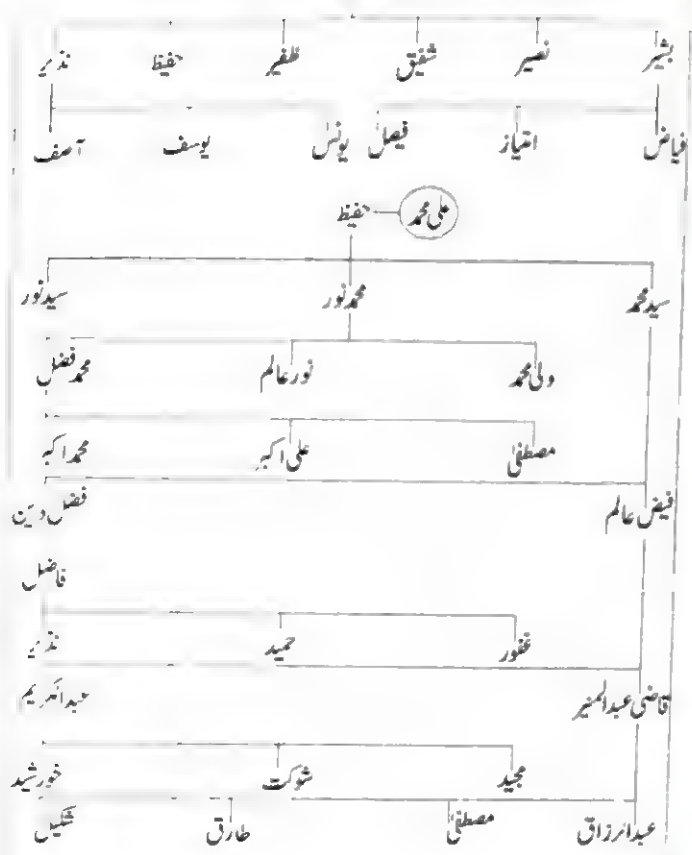 بشیر نصیر شفیق ظفیر حفیظ نذیر
فیاض امتیاز فیصل یونس یوسف آصف
علی محمد حفیظ
سید محمد محمد نور سید نور
ولی محمد نور عالم محمد فضل
مصطفیٰ علی اکبر محمد اکبر
فیض عالم فضل دین
فاضل
غفور حمید نذیر
قاضی عبدالمنیر عبدالکریم
مجید شوکت خورشید
عبدالرزاق مصطفیٰ طارق شکیل